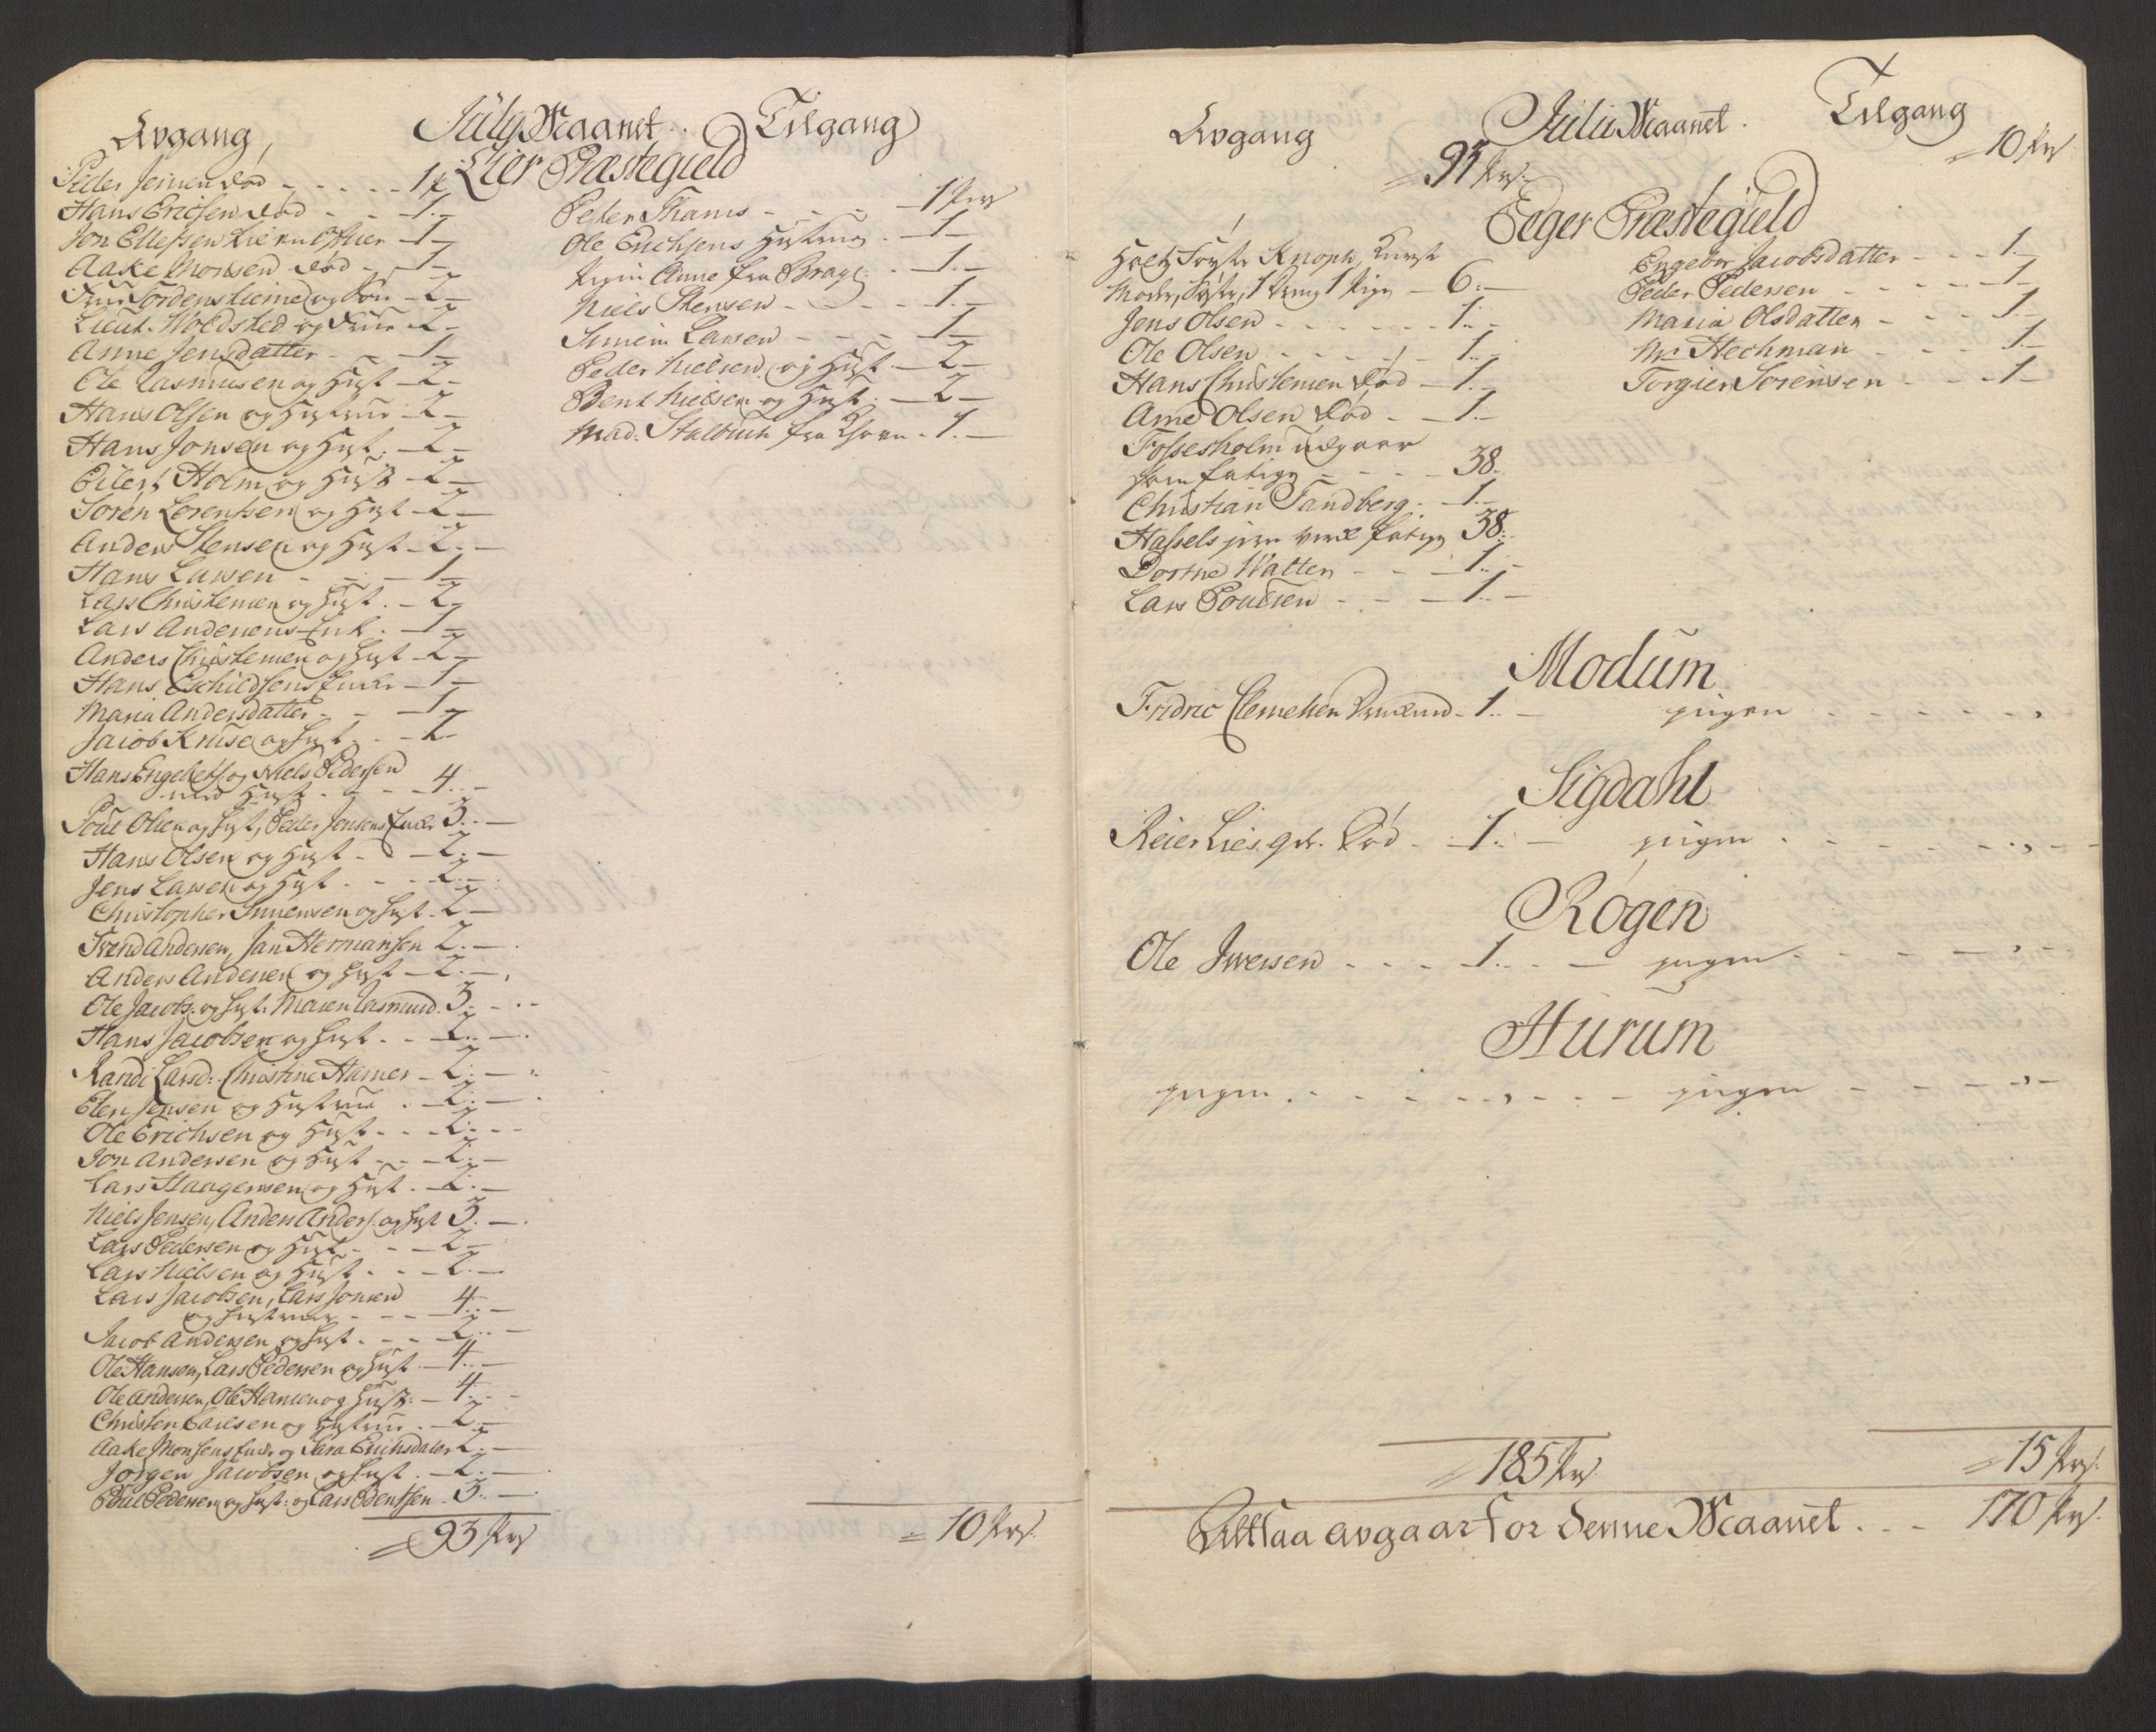 Avgang, July Maanet. Tilgang
Lier Præstegield
Peder Jensen død - - - 1
Hans Ericsen død - - 1 -
Jon Ellefsen Lie - 1 -
Aake Monsen død - 1 -
Frue Tordenskield og Søn - 2 -
Lieut. Woldsted og Frue - 2 -
Anne Jensdatter - - 1 -
Ole Rasmusen og Hust - 2 -
Hans Olsen og Hustrue - 2 -
Hans Jonsen og Hust. - 2 -
Eilert Holm og Hust - 2 -
Soren Lorentsen og Hust - 2 -
Anders Stensen og Hust - 2 -
Hans Larsen - - - 1 -
Lars Christensen og Hust. - 2 -
Lars Andersens Enk. - 1 -
Anders Christensen og Hust - 2 -
Hans Eschildsens Enke - 1 -
Maria Andersdatter - - 1 -
Jacob Kruse og Hust. - 2
Hans Engebrets og Niels Pedersen
med Hust. - - - 4. -
Poul Olsen og Hust, Peder Jensens Enke 3. -
Hans Olsen og Hust - - 2. -
Jens Larsen og Hust. - - 2. -
Christopher Simensen og Hust. 2 -
Svend Andersen, Jan Hermansen 2. -
Anders Andersen og Hust - 2. -
Ole Jacobs: og Hust. Maren Rasmusd. 3. -
Hans Jacobsen og Hust. - - 2. -
Randi Larsd: Christine Hamer - 2. -
Elen Jensen og Hustrue . - 2. -
Ole Erichsen og Hust - - - 2. -
Jon Andersen og Hust - - - 2. -
Lars Haagensen og Hust. - 2. -
Niels Jensen, Anders Anders. og Hust 3. -
Lars Pedersen og Hust - - - 2 -
Lars Nielsen og Hust - - - 2. -
Lars Jacobsen, Lars Jonsen
og Hustruer - - - 4. -
Jacob Andersen og Hust. - - - 2. -
Ole Hansen, Lars Pedersen og Hust. - 4. -
Ole Andersen, Ole Hansen og Hust: - 4. -
Christen Carlsen og Hustrue - 2. -
Aake Monsens Enke og Sara Erichsdater 2. -
Jorgen Jacobsen og Hust. - 2. -
Poul Pedersen og Hust: og Lars Bentsen. 3. -
= 93 Prs
Peter Thams - - - - 1 Prs
Ole Erichsens Hustrue - 1 -
Anne fra Bragn: - 1. -
Niels Stensen - - - - 1. -
Simen Larsen - - - 1 -
Peder Nielsen og Hust. - 2 -
Bent Nielsen og Hust. - 2 -
Mad. fra - 1. -
= 10 Prs.
Avgang Julii Maanet. Tilgang
= 93 Prs. = 10 Prs
Eeger Præstegield
Knoph,
Moder, 1 1 Pige - 6. -
Jens Olsen - - - - - - 1. -
Ole Olsen - - - - - - 1. -
Hans Christensen død - 1. -
Arne Olsen død - - 1. -
Fossesholm udgaar
som fattige - - - - 38.
Christian Sandberg. - 1. -
Hassels jern værk fattige 38.
Dorthe Watten - - - 1. -
Lars Poulsen - - - 1. -
Engebor Jacobsdatter - - - 1. -
Peder Pedersen - - - - - 1 -
Maria Olsdatter - - - 1 -
Mr. Hechman - - - - 1 -
Torgier Sorensen - - - 1 -
Modum
Fridric Clemetsen - 1. - jngen - - - - - -
Sigdahl
Reier Lies død - 1. - jngen - - - - - -
Rogen
Ole Iversen - - - 1. - jngen - - - - - -
Hurum
jngen - - - - - - jngen - - - - - -
= 185 Prs = 15 Prs.
Altsaa avgaar for denne Maanet. - - 170 Prs.